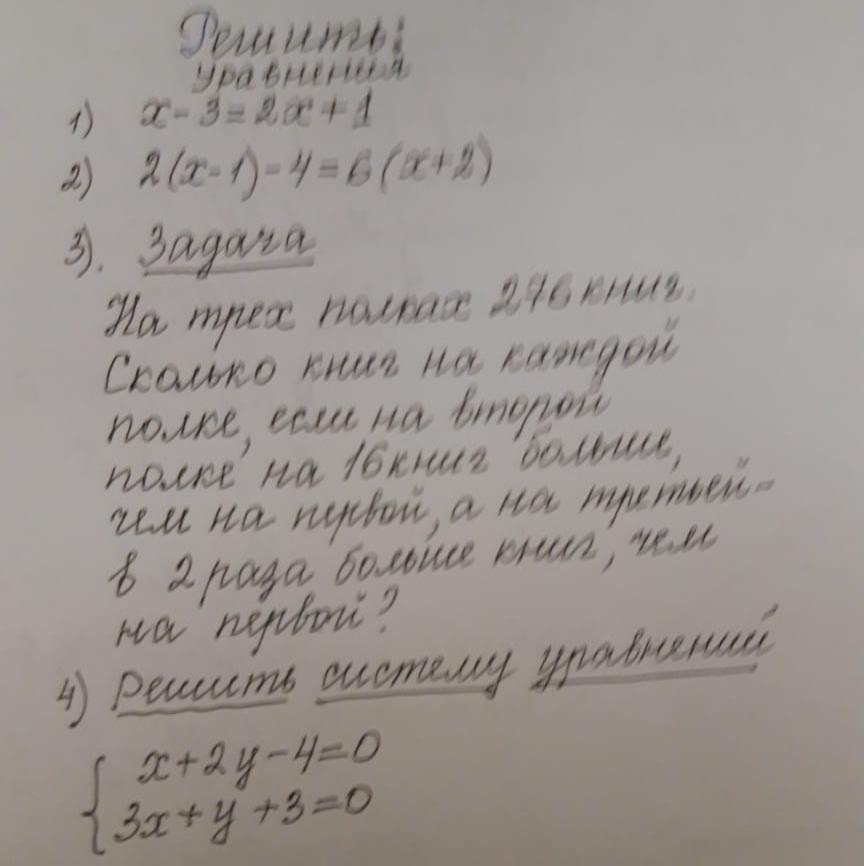 Решить:
уравнения
1) x-3=2x+1
2) 2(x-1)-4=6(x+2)
3). Задача
На трех полках 276 книг.
Сколько книг на каждой
полке, если на второй
полке на 16 книг больше,
чем на первой, а на третьей-
в 2 раза больше книг, чем
на первой?
4) Решить систему уравнений
{ x+2y-4=0
3x+y+3=0